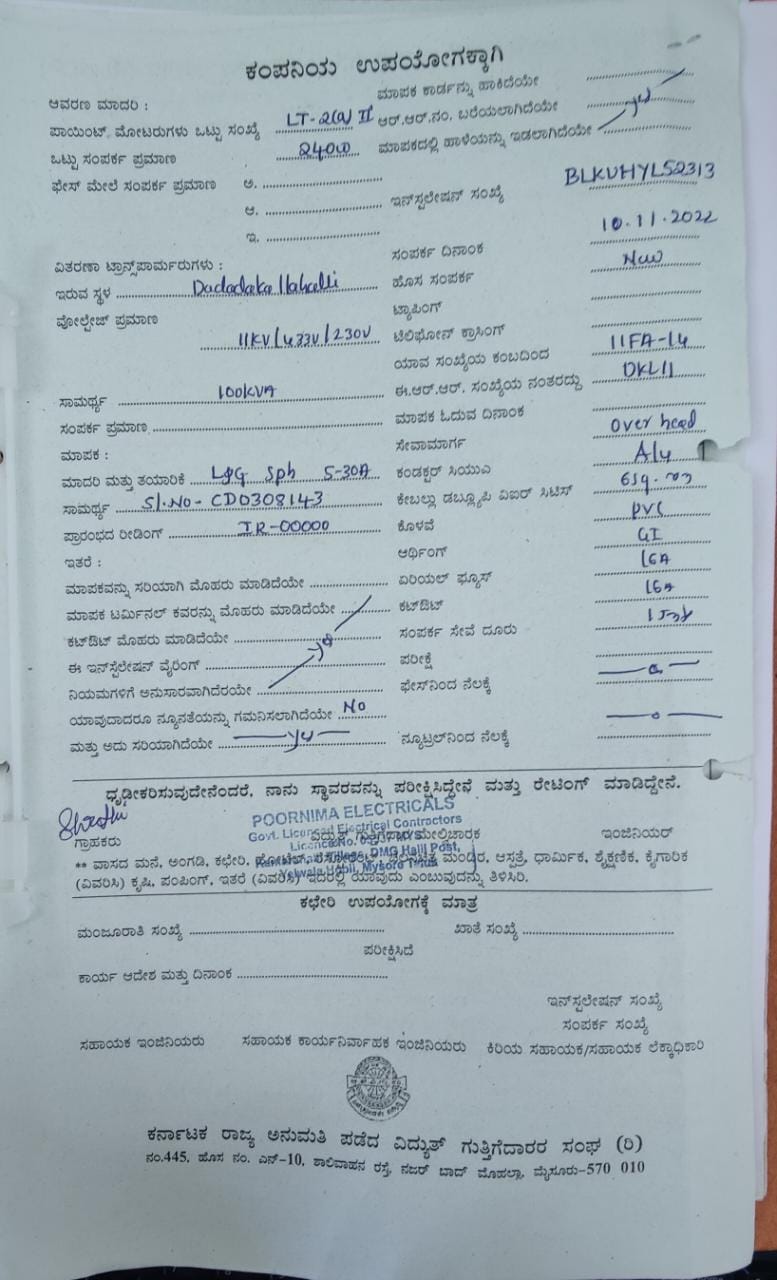 ಕಂಪನಿಯ ಉಪಯೋಗಕ್ಕಾಗಿ
ಆವರಣ ಮಾದರಿ :
ಮಾಪಕ ಕಾರ್ಡನ್ನು ಹಾಕಿದೆಯೇ
ಪಾಯಿಂಟ್, ಮೋಟರುಗಳು ಒಟ್ಟು ಸಂಖ್ಯೆ LT-2(a) II ಆರ್.ಆರ್.ನಂ. ಬರೆಯಲಾಗಿದೆಯೇ
ಒಟ್ಟು ಸಂಪರ್ಕ ಪ್ರಮಾಣ 2400 ಮಾಪಕದಲ್ಲಿ ಹಾಳೆಯನ್ನು ಇಡಲಾಗಿದೆಯೇ yes
ಫೇಸ್ ಮೇಲೆ ಸಂಪರ್ಕ ಪ್ರಮಾಣ ಅ.
ಆ. ಇನ್‌ಸ್ಟಲೇಷನ್ ಸಂಖ್ಯೆ BLKVHYL52313
ಇ.
ವಿತರಣಾ ಟ್ರಾನ್ಸ್‌ಪಾರ್ಮರುಗಳು : ಸಂಪರ್ಕ ದಿನಾಂಕ 10.11.2022
ಇರುವ ಸ್ಥಳ Dadadakallahalli ಹೊಸ ಸಂಪರ್ಕ New
ವೋಲ್ಟೇಜ್ ಪ್ರಮಾಣ 11KV/433V/230V ಟ್ಯಾಪಿಂಗ್
ಟೆಲಿಫೋನ್ ಕ್ರಾಸಿಂಗ್
ಯಾವ ಸಂಖ್ಯೆಯ ಕಂಬದಿಂದ 11FA-14
ಸಾಮರ್ಥ್ಯ 100KVA ಈ.ಆರ್.ಆರ್. ಸಂಖ್ಯೆಯ ನಂತರದ್ದು DKL11
ಸಂಪರ್ಕ ಪ್ರಮಾಣ ಮಾಪಕ ಓದುವ ದಿನಾಂಕ
ಮಾಪಕ : ಸೇವಾಮಾರ್ಗ over head
ಮಾದರಿ ಮತ್ತು ತಯಾರಿಕೆ L&G Sph 5-30A ಕಂಡಕ್ಟರ್ ಸಿಯುಎ Alu
ಸಾಮರ್ಥ್ಯ Sl.No- CD0308143 ಕೇಬಲ್ಲು ಡಬ್ಲ್ಯೂಪಿ ವಿಐರ್ ಸಿಟಿಸ್ 6sq.mm
ಪ್ರಾರಂಭದ ರೀಡಿಂಗ್ IR-00000 ಕೊಳವೆ PVC
ಇತರೆ : ಆರ್ಥಿಂಗ್ GI
ಮಾಪಕವನ್ನು ಸರಿಯಾಗಿ ಮೊಹರು ಮಾಡಿದೆಯೇ ಏರಿಯಲ್ ಫ್ಯೂಸ್ 16A
ಮಾಪಕ ಟರ್ಮಿನಲ್ ಕವರನ್ನು ಮೊಹರು ಮಾಡಿದೆಯೇ ಕಟ್‌ಔಟ್ 16A
ಕಟ್‌ಔಟ್ ಮೊಹರು ಮಾಡಿದೆಯೇ yes ಸಂಪರ್ಕ ಸೇವೆ ದೂರು
ಈ ಇನ್‌ಸ್ಟಲೇಷನ್ ವೈರಿಂಗ್ ಪರೀಕ್ಷೆ
ನಿಯಮಗಳಿಗೆ ಅನುಸಾರವಾಗಿದೆರಯೇ ಫೇಸ್‌ನಿಂದ ನೆಲಕ್ಕೆ
ಯಾವುದಾದರೂ ನ್ಯೂನತೆಯನ್ನು ಗಮನಿಸಲಾಗಿದೆಯೇ No
ಮತ್ತು ಅದು ಸರಿಯಾಗಿದೆಯೇ yes ನ್ಯೂಟ್ರಲ್‌ನಿಂದ ನೆಲಕ್ಕೆ
ಧೃಢೀಕರಿಸುವುದೇನೆಂದರೆ, ನಾನು ಸ್ಥಾವರವನ್ನು ಪರೀಕ್ಷಿಸಿದ್ದೇನೆ ಮತ್ತು ರೇಟಿಂಗ್ ಮಾಡಿದ್ದೇನೆ.
POORNIMA ELECTRICALS
Govt. Licensed Electrical Contractors
ಗ್ರಾಹಕರು ವಿದ್ಯುತ್ ಗುತ್ತಿಗೆದಾರ ಮೇಲ್ವಿಚಾರಕ ಇಂಜಿನಿಯರ್
Licence No.
DMG Halli Post,
Yelwala Hobli, Mysore
** ವಾಸದ ಮನೆ, ಅಂಗಡಿ, ಕಛೇರಿ, ಹೋಟೆಲ್, ಮಂದಿರ, ಆಸ್ಪತ್ರೆ, ಧಾರ್ಮಿಕ, ಶೈಕ್ಷಣಿಕ, ಕೈಗಾರಿಕೆ
(ವಿವರಿಸಿ) ಕೃಷಿ, ಪಂಪಿಂಗ್, ಇತರೆ (ವಿವರಿಸಿ) ಇದರಲ್ಲಿ ಯಾವುದು ಎಂಬುವುದನ್ನು ತಿಳಿಸಿರಿ.
ಕಛೇರಿ ಉಪಯೋಗಕ್ಕೆ ಮಾತ್ರ
ಮಂಜೂರಾತಿ ಸಂಖ್ಯೆ ಖಾತೆ ಸಂಖ್ಯೆ
ಪರೀಕ್ಷಿಸಿದೆ
ಕಾರ್ಯ ಆದೇಶ ಮತ್ತು ದಿನಾಂಕ
ಇನ್‌ಸ್ಟಲೇಷನ್ ಸಂಖ್ಯೆ
ಸಂಪರ್ಕ ಸಂಖ್ಯೆ
ಸಹಾಯಕ ಇಂಜಿನಿಯರು ಸಹಾಯಕ ಕಾರ್ಯನಿರ್ವಾಹಕ ಇಂಜಿನಿಯರು ಕಿರಿಯ ಸಹಾಯಕ/ಸಹಾಯಕ ಲೆಕ್ಕಾಧಿಕಾರಿ
ಕರ್ನಾಟಕ ರಾಜ್ಯ ಅನುಮತಿ ಪಡೆದ ವಿದ್ಯುತ್ ಗುತ್ತಿಗೆದಾರರ ಸಂಘ (ರಿ)
ನಂ.445, ಹೊಸ ನಂ. ಎನ್-10, ಶಾಲಿವಾಹನ ರಸ್ತೆ, ನಜರ್ ಬಾದ್ ಮೊಹಲ್ಲಾ, ಮೈಸೂರು-570 010